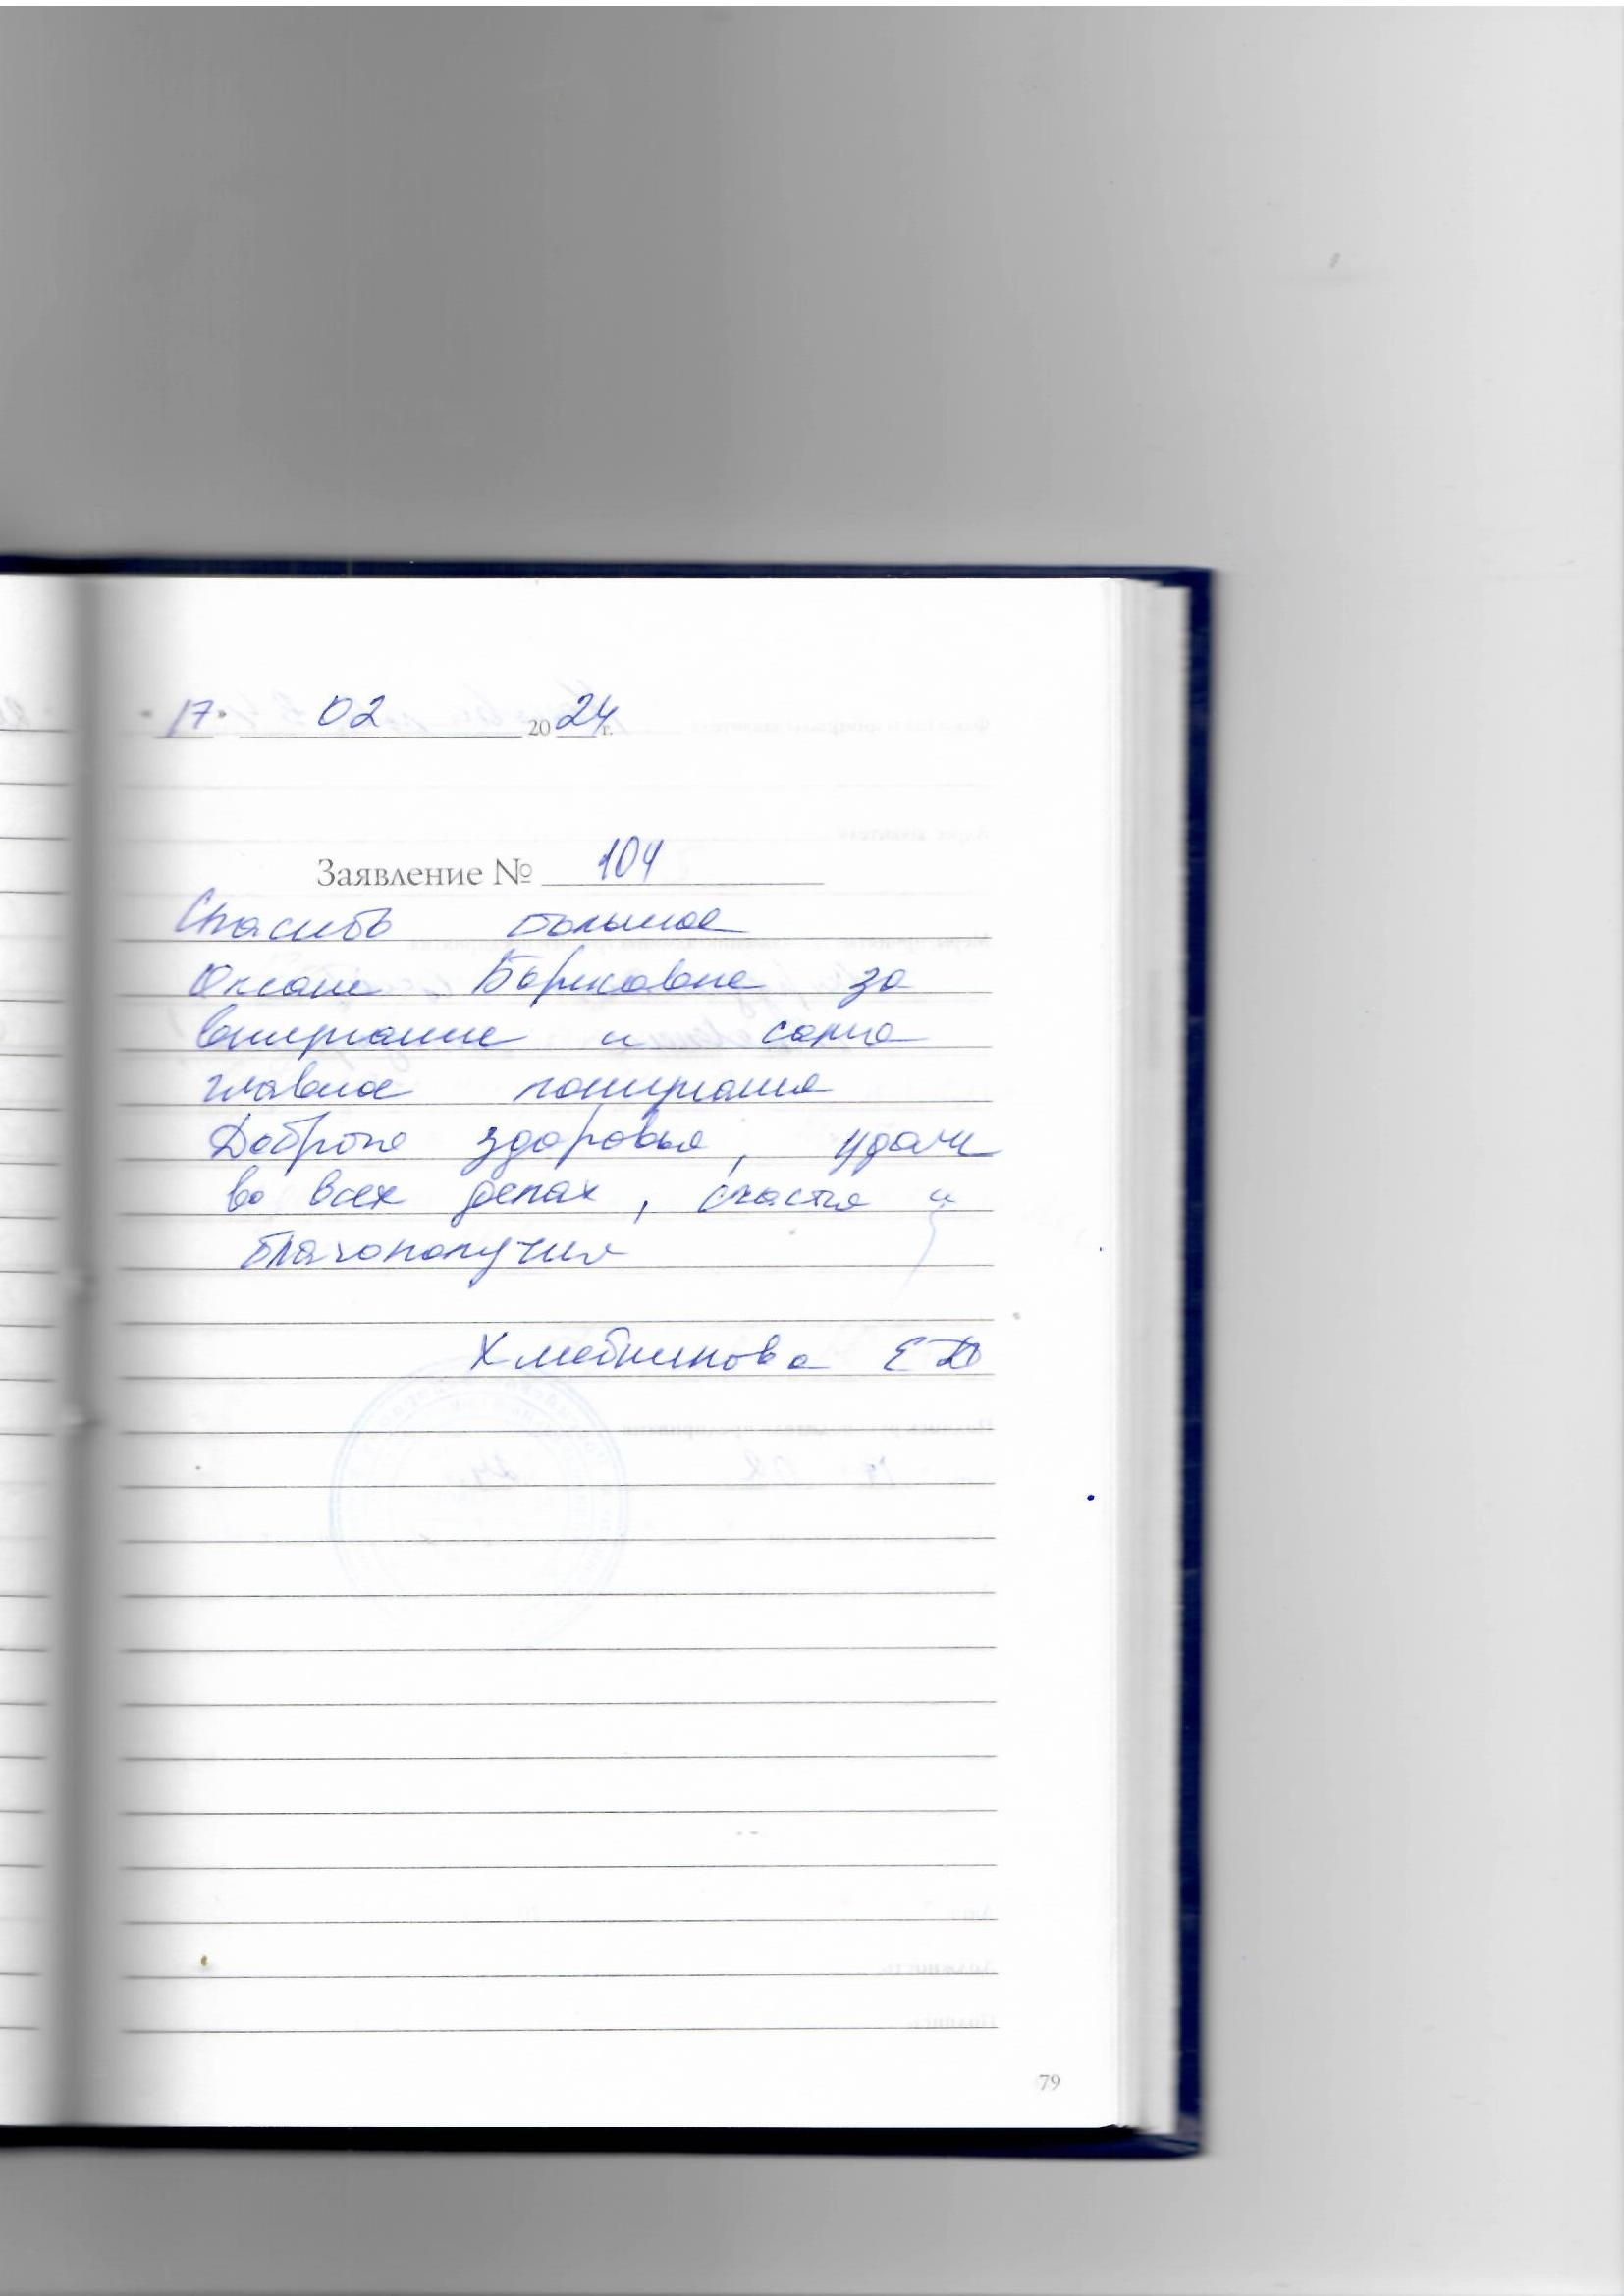 "17" 02 2024 г.
Заявление № 104
Спасибо большое
Оксане Борисовне за
внимание и самое
главное понимание
Доброго здоровья, удачи
во всех делах, счастья и
благополучия
Е Д
79